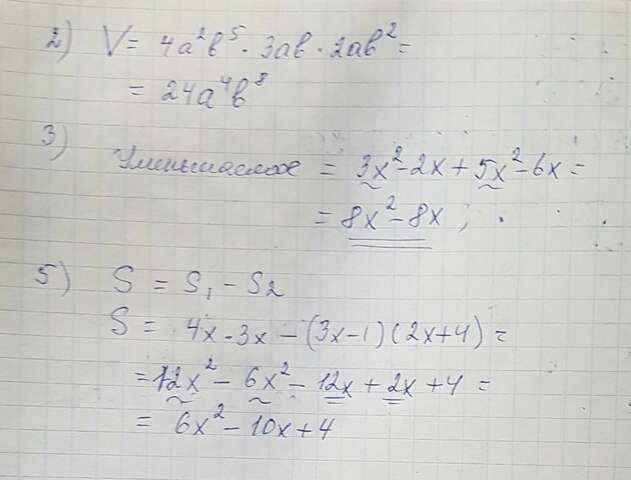 2) V = 4a²b⁵ · 3ab · 2ab² =
= 24a⁴b⁸
3)
Уменьшаемое = 3x² - 2x + 5x² - 6x =
= 8x² - 8x ;
5) S = S₁ - S₂
S = 4x - 3x - (3x-1)(2x+4) =
= 12x² - 6x² - 12x + 2x + 4 =
= 6x² - 10x + 4